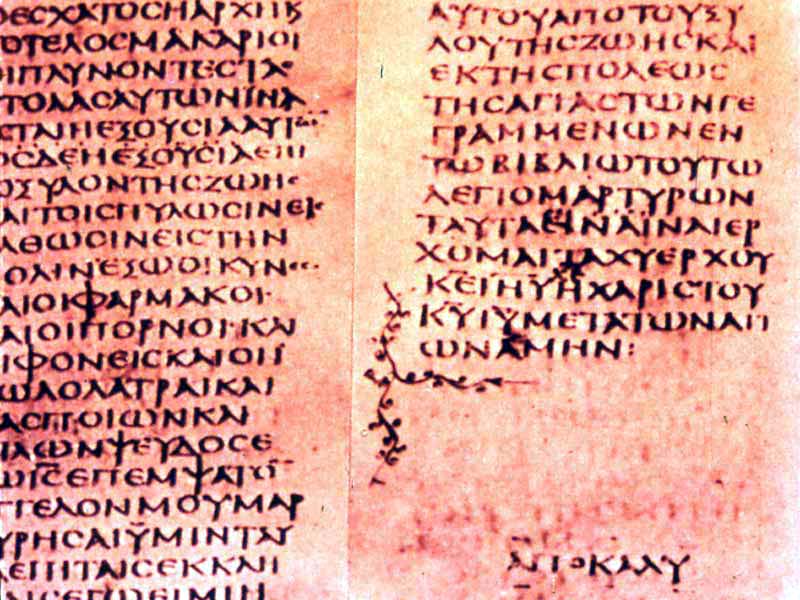 ΟΕϹΧΑΤΟϹΗΑΡΧΗΚ
ΤΟΤΕΛΟϹΜΑΚΑΡΙΟΙ
ΟΙΠΛΥΝΟΝΤΕϹΤΑϹ
ΤΟΛΑϹΑΥΤΩΝΙΝΑ
ΕϹΤΑΙΗΕΞΟΥϹΙΑΑΥΤΩ
ΟΞΥΛΟΝΤΗϹΖΩΗϹ
ΑΙΤΟΙϹΠΥΛΩϹΙΝΕΙϹ
ΛΘΩϹΙΝΕΙϹΤΗΝ
ΠΟΛΙΝΕΞΩΟΙΚΥΝΕϹ
ΑΙΟΙΦΑΡΜΑΚΟΙ
ΑΙΟΙΠΟΡΝΟΙΚΑΙ
ΙΦΟΝΕΙϹΚΑΙΟΙΙ
ΩΛΟΛΑΤΡΑΙΚΑΙ
ΑϹΠΟΙΩΝΚΑΙ
ΙΛΩΝΨΕΥΔΟϹΕ
ΩΙϹΕΠΕΜΨΑΤΟ
ΓΓΕΛΟΝΜΟΥΜΑΡ
ΥΡΗϹΑΙΫΜΙΝΤΑΥ
ΕΠΙΤΑΙϹΕΚΚΛΗ
ΑΙϹΕΓΩΕΙΜΙΗ
ΑΥΤΟΥΑΠΟΤΟΥΞΥ
ΛΟΥΤΗϹΖΩΗϹΚΑΙ
ΕΚΤΗϹΠΟΛΕΩϹ
ΤΗϹΑΓΙΑϹΤΩΝΓΕ
ΓΡΑΜΜΕΝΩΝΕΝ
ΤΩΒΙΒΛΙΩΤΟΥΤΩ
ΛΕΓΙΟΜΑΡΤΥΡΩΝ
ΤΑΥΤΑΕΙΝΑΪΝΑΙΕΡ
ΧΟΜΑΙΤΑΧΥΕΡΧΟΥ
Κ̅Ε̅Ι̅Η̅Υ̅ΗΧΑΡΙϹΤΟΥ
Κ̅Υ̅Ι̅Υ̅ΜΕΤΑΤΩΝΑΓΙ
ΩΝΑΜΗΝ:
ΑΠΟΚΑΛΥ